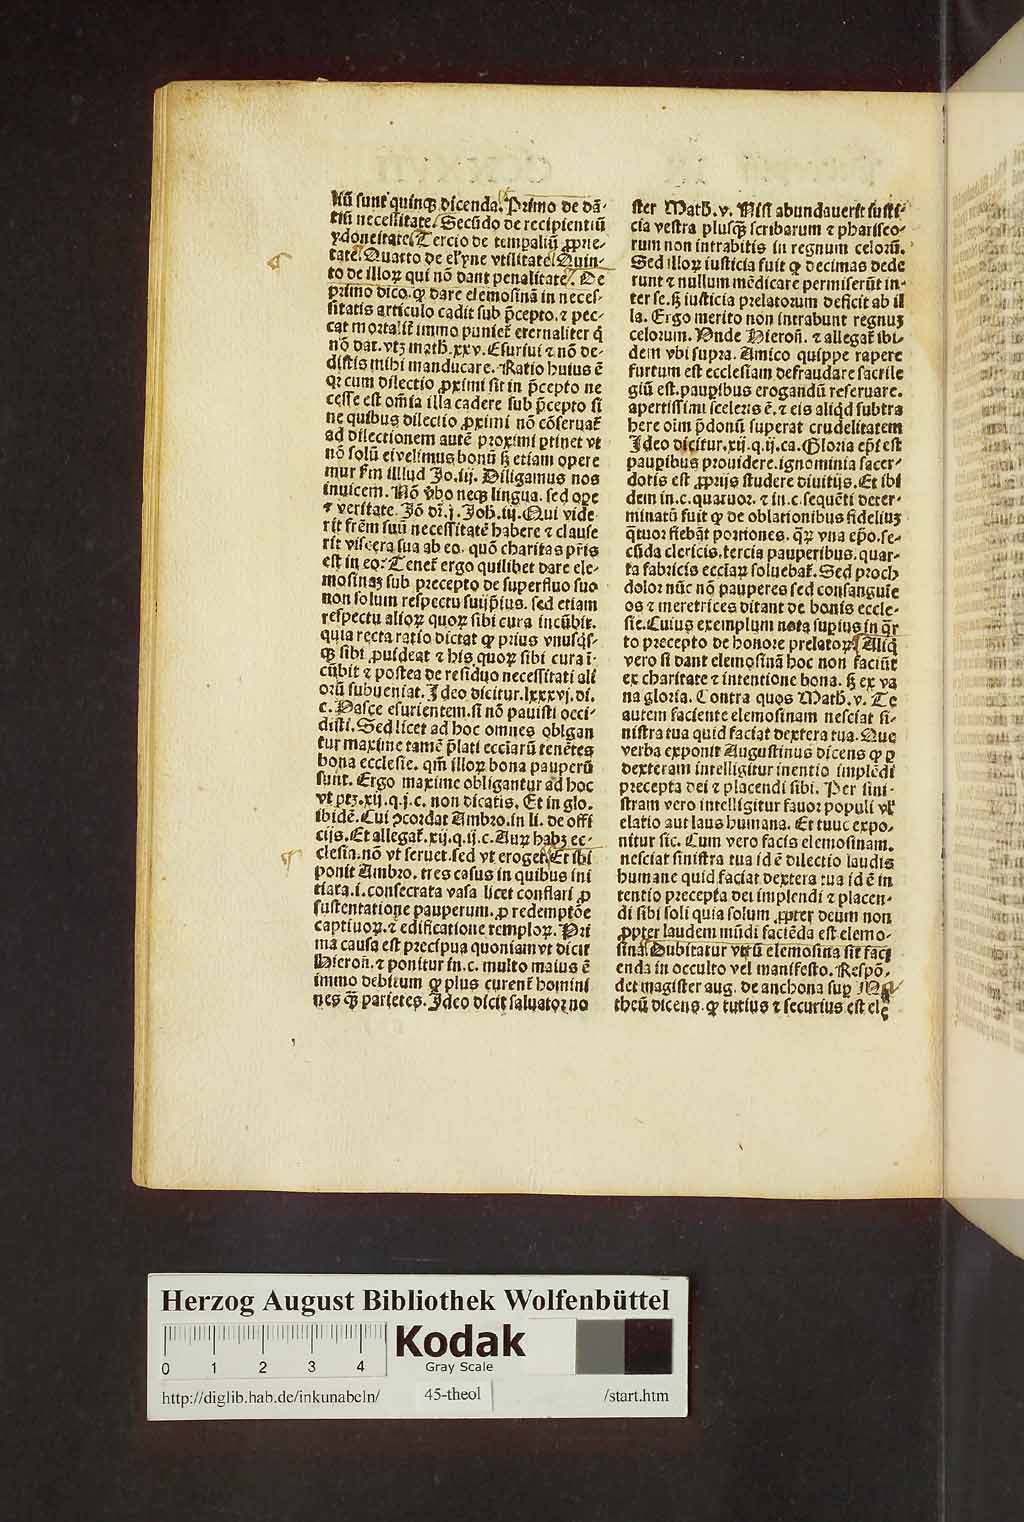 liū sunt quinqꝫ dicenda. Primo de dā-
tiū necessitate. Secūdo de recipientiū
ydoneitate. Tercio de tempaliū ꝓprie-
tate. Quarto de elyne vtilitate. Quin-
to de illoꝝ qui nō dant penalitate. De
primo dico. ꝙ dare elemosinā in neces-
sitatis articulo cadit sub p̄cepto. ⁊ pec-
cat mortalit̄ immo puniet̄ eternaliter q̇
nō dat. vtꝫ math̄.xxv. Esuriui ⁊ nō de-
distis mihi manducare. Ratio huius ē
qꝛ cum dilectio ꝓximi sit in p̄cepto ne
cesse est om̄ia illa cadere sub p̄cepto si
ne quibus dilectio ꝓximi nō cōseruat̄
ad dilectionem autē proximi ptinet vt
nō solū ei velimus bonū sꝫ etiam opere
mur s̄m illlud Jo.iij. Diligamus nos
inuicem. Nō v̄bo neqꝫ lingua. sed ope
⁊ veritate. Jō dr̄.j. Joh̄.iij. Qui vide
rit frēm suū necessitatē habere ⁊ clause
rit viscera sua ab eo. quō charitas pr̄is
est in eo: Tenet̄ ergo quilibet dare ele-
mosinaꝫ sub precepto de superfluo suo
non solum respectu suijp̄ius. sed etiam
respectu alioꝝ quoꝝ sibi cura incūbit.
quia recta ratio dictat ꝙ prius vnusq̇s-
qꝫ sibi ꝓuideat ⁊ his quoꝝ sibi cura ī-
cūbit ⁊ postea de residuo necessitati ali
orū subueniat. Ideo dicitur.lxxxvj.di.
c. Pasce esurientem. si nō pauisti occi-
disti. Sed licet ad hoc omnes oblgan
tur maxime tamē p̄lati ecciarū tenētes
bona ecclesie. qm̄ illoꝝ bona pauperū
sunt. Ergo maxime obligantur ad hoc
vt ptꝫ.xij.q.j.c. non dicatis. Et in glo.
ibidē. Cui ꝯcordat Ambro. in li. de offi
cijs. Et allegat̄.xij.q.ij.c. Auꝝ habꝫ ec-
clesia. nō vt seruet. sed vt eroget. Et ibi
ponit Ambro. tres casus in quibus ini
tiata.i. consecrata vasa licet conflari ꝓ
sustentatione pauperum. ꝓ redemptōe
captiuoꝝ. ⁊ edificatione temploꝝ. Pri
ma causa est precipua quoniam vt dicit
Hieron̄. ⁊ ponitur in.c. multo maius ē
immo debitum ꝙ plus curent̄ homini
nes qꝫ parietes. Ideo dicit saluator no
ster Math̄.v. Nisi abundauerit iusti-
cia vestra plusqꝫ scribarum ⁊ phariseo-
rum non intrabitis in regnum celorū.
Sed illoꝝ iusticia fuit ꝙ decimas dede
runt ⁊ nullum mēdicare permiserūt in-
ter se. sꝫ iusticia prelatorum deficit ab il
la. Ergo merito non intrabunt regnuꝫ
celorum. Vnde Hieron̄. ⁊ allegat̄ ibi-
dem vbi supra. Amico quippe rapere
furtum est ecclesiam defraudare sacrile
giū est. paupibus erogandū reseruare.
apertissimi sceleris ē. ⁊ eis aliq̇d subtra
here oīm p̄donū superat crudelitatem
Ideo dicitur.xij.q.ij.ca. Gloria ep̄i est
paupibus prouidere. ignominia sacer-
dotis est ꝓprijs studere diuitijs. Et ibi
dem in.c. quatuor. ⁊ in.c. sequēti deter-
minatū fuit ꝙ de oblationibus fideliuꝫ
q̄tuor fiebāt portiones. q̄ꝝ vna ep̄o. se-
cūda clericis. tercia pauperibus. quar-
ta fabricis ecciaꝝ soluebat̄. Sed proch
dolor nūc nō pauperes sed consanguīe
os ⁊ meretrices ditant de bonis eccle-
sie. Cuius exemplum nota supius in q̄r
to precepto de honore prelatoꝝ. Aliq̇
vero si dant elemosinā hoc non faciūt
ex charitate ⁊ intentione bona. sꝫ ex va
na gloria. Contra quos Math̄.v. Te
autem faciente elemosinam nesciat si-
nistra tua quid faciat dextera tua. Que
verba exponit Augustinus dicens ꝙ ꝑ
dexteram intelligitur inentio implēdi
precepta dei ⁊ placendi sibi. Per sini-
stram vero intelligitur fauor populi vl̄
elatio aut laus humana. Et tunc expo-
nitur sic. Cum vero facis elemosinam.
nesciat sinistra tua id ē dilectio laudis
humane quid faciat dextera tua id ē in
tentio precepta dei implendi ⁊ placen-
di sibi soli quia solum ꝓpter deum non
ꝓpter laudem mūdi faciēda est elemo-
sina. Dubitatur vtrū elemosina sit faci
enda in occulto vel manifesto. Respō-
det magister aug. de anchona sup Ma
theū dicens. ꝙ tutius ⁊ securius est ele
Herzog August Bibliothek Wolfenbüttel
0 1 2 3 4
Kodak
Gray Scale
http://diglib.hab.de/inkunabeln/ 45-theol /start.htm